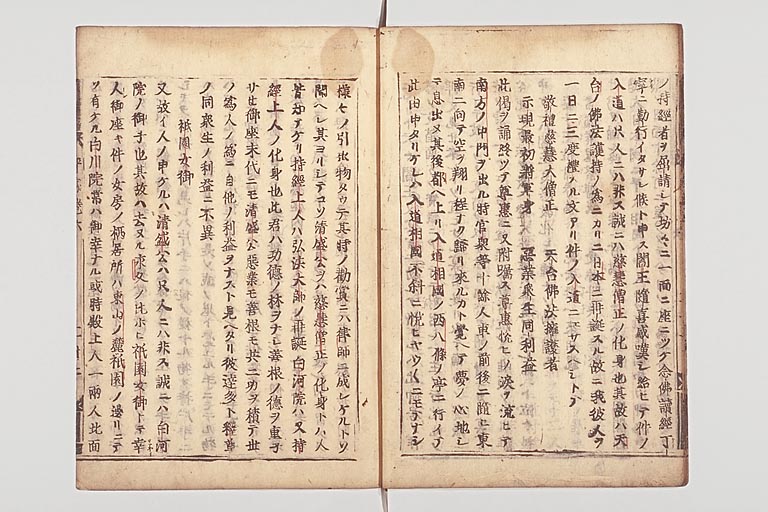 ノ持經者ヲ屈請シテ坊々ニ一面ニ座ニツケ念佛讀經丁
寧ニ勤行イタサレ候ト申ス閻王隨喜感嘆シ給ヒテ件ノ
入道ハ只人ニハ非ス誠ニハ慈惠僧正ノ化身也其故ハ天
台ノ佛法護持ノ為ニカリニ日本ニ再誕スル故ニ我彼人ヲ
一日ニ三度禮スル文アリ件ノ入道ニマサスヘシトテ
敬禮慈惠大僧正　天台佛法擁護者
示現最初將軍身　惡業衆生同利益
此偈ヲ誦終ツテ尊惠ニ又附囑ス尊惠悅ヒノ淚ヲ流ヒテ
南方ノ中門ヲ出ル時官衆等十餘人車ノ前後ニ隨ヒ東
南ニ向テ空ヲ翔リ程ナク歸リ來ルカト覺ヘテ夢ノ心地シ
テ息出ヌ其後都ヘ上リ入道相國ノ西八條ノ亭ニ行イテ
此由申タリケレハ入道相國不斜ニ悅ヒヤウ〱ニモテナシ
樣々ノ引出物タウテ其時ノ勸賞ニハ律師ニ成レケルトソ
聞ヘシ其ヨリシテコソ清盛公ヲハ慈惠僧正ノ化身トハ人
皆知テケリ持經上人ハ弘法大師ノ再誕白河院ハ又持
經上人ノ化身也此君ハ功德ノ林ヲナシ善根ノ德ヲ重子
サセ御座末代ニモ清盛公惡業モ善根モ共ニ功ヲ積テ世
ノ為人ノ為ニ自他ノ利益ヲナスト見ヘタリ彼達多ト釋尊
ノ同衆生ノ利益ニ不異
祇園女御
又故イ人ノ申ケルハ清盛公ハ只人ニハ非ス誠ニハ白河
院ノ御子也其故ハ去ヌル永久ノ比ホヒ祇園女御トテ幸
人御座ケ件ノ女房ノ栖居所ハ東山ノ麓祇園ノ邊リニテ
ソ有ケル白川院常ハ御幸ナル或時殿上人一兩人北面